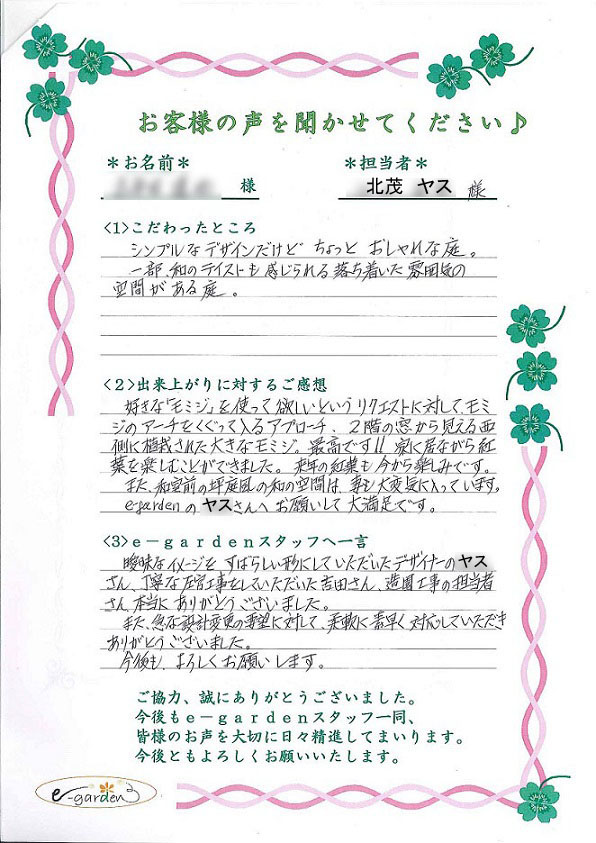 お客様の声を聞かせてください♪
*お名前* *担当者*
様 北茂 ヤス 様
<1>こだわったところ
シンプルなデザインだけど ちょっと おしゃれな庭。
一部、和のテイストも感じられる落ち着いた雰囲気の
空間がある庭。
<2>出来上がりに対するご感想
好きな「モミジ」を使って欲しいというリクエストに対して、モミ
ジのアーチをくぐって入るアプローチ、2階の窓から見える西
側に植栽された大きなモミジ。最高です!! 家に居ながら紅
葉を楽しむことができました。来年の紅葉も今から楽しみです。
また、和室前の坪庭風の和の空間は、妻も大変気に入っています。
e-gardenの ヤスさんへお願いして大満足です。
<3>e-gardenスタッフへ一言
曖昧なイメージを すばらしい形にしていただいたデザイナーのヤス
さん、丁寧な左官工事をしていただいた吉田さん、造園工事の担当者
さん、本当に ありがとうございました。
また、急な設計変更の要望に対して、柔軟に素早く対応していただき
ありがとうございました。
今後も、よろしくお願いします。
ご協力、誠にありがとうございました。
今後もe-gardenスタッフ一同、
皆様のお声を大切に日々精進してまいります。
今後ともよろしくお願いいたします。
e-garden